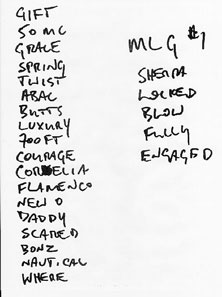 GIFT
50 MC
GRACE
SPRING
TWIST
ABAC
BUTTS
LUXURY
700 FT
COURAGE
CORDELIA
FLAMENCO
NEW O
DADDY
SCARED
BONZ
NAUTICAL
WHERE
MLG #1
SHERPA
LOCKED
BLOW
FULLY
ENGAGED